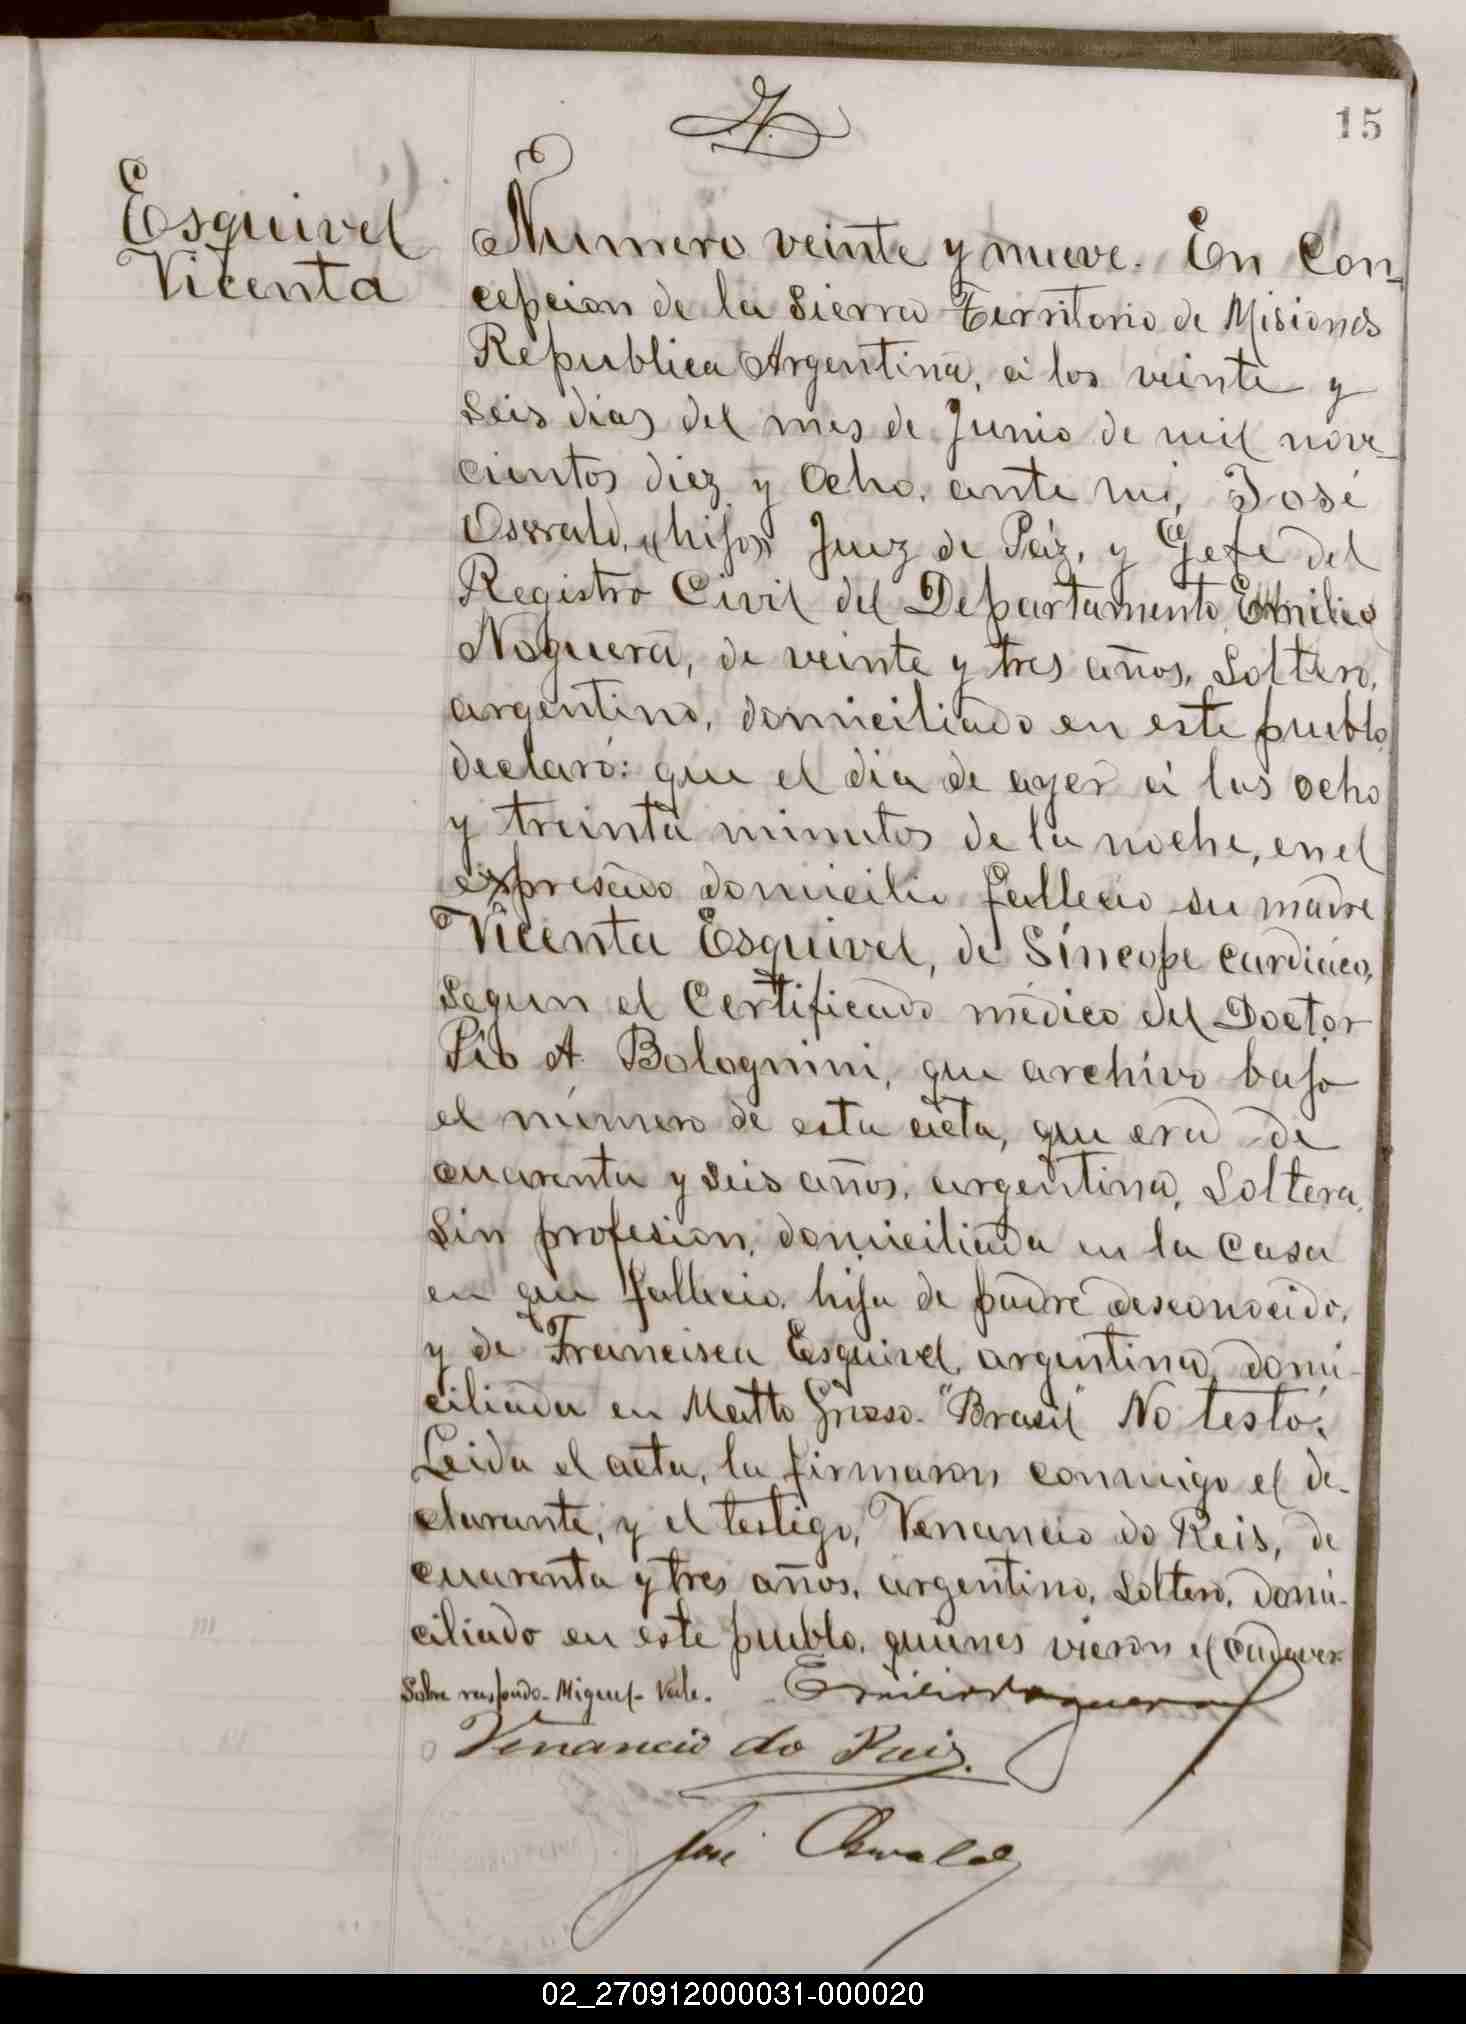 15
Esquivel
Vicenta
Numero veinte y nueve. En Con-
cepcion de la Sierra Territorio de Misiones
Republica Argentina, á los veinte y
seis dias del mes de Junio de mil nove-
cientos diez y ocho, ante mi, José
Oswald, (hijo) Juez de Páz, y Gefe del
Registro Civil del Departamento, Emilio
Noguera, de veinte y tres años, soltero,
argentino, domiciliado en este pueblo,
declaró: que el dia de ayer á las ocho
y treinta minutos de la noche, en el
expresado domicilio fallecio su madre
Vicenta Esquivel, de Síncope cardiáco,
segun el Certificado médico del Doctor
Pío A. Bolognini, que archivo bajo
el número de esta acta, que era de
cuarenta y seis años, argentina, soltera,
sin profesion, domiciliada en la casa
en que fallecio, hija de padre desconocido,
y de Francisca Esquivel, argentina, domi-
ciliada en Matto Grosso. "Brasil" No testó.
Leida el acta, la firmaron conmigo el de-
clarante, y el testigo, Venancio do Reis, de
cuarenta y tres años, argentino, soltero, domi-
ciliado en este pueblo, quienes vieron el cadaver
Sobre raspado- - Vale. Emilio Noguera
Venancio do Reis.
José Oswald
02_270912000031-000020